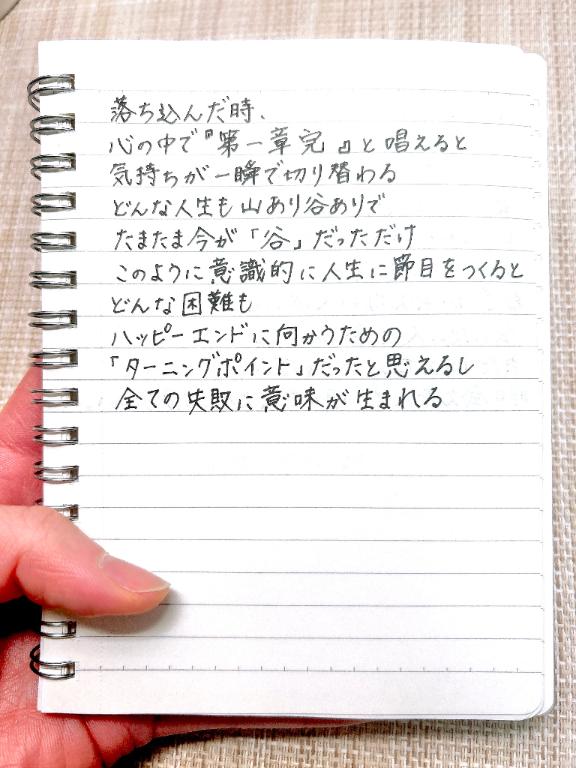 落ち込んだ時、
心の中で『第一章完』と唱えると
気持ちが一瞬で切り替わる
どんな人生も山あり谷ありで
たまたま今が「谷」だっただけ
このように意識的に人生に節目をつくると
どんな困難も
ハッピーエンドに向かうための
「ターニングポイント」だったと思えるし
全ての失敗に意味が生まれる